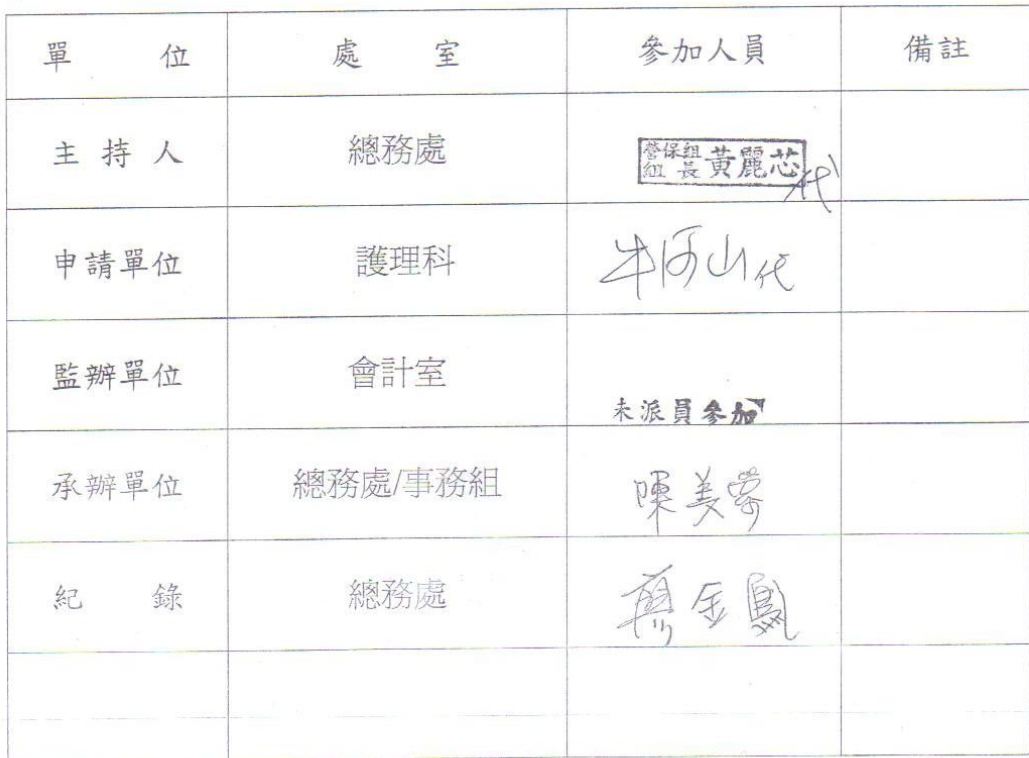 單 位 處 室 參加人員 備註
主 持 人 總務處 營保組組長 黃麗芯 代
申請單位 護理科 牛河山代
監辦單位 會計室 未派員參加
承辦單位 總務處/事務組 陳美蓉
紀 錄 總務處 廖金鳳